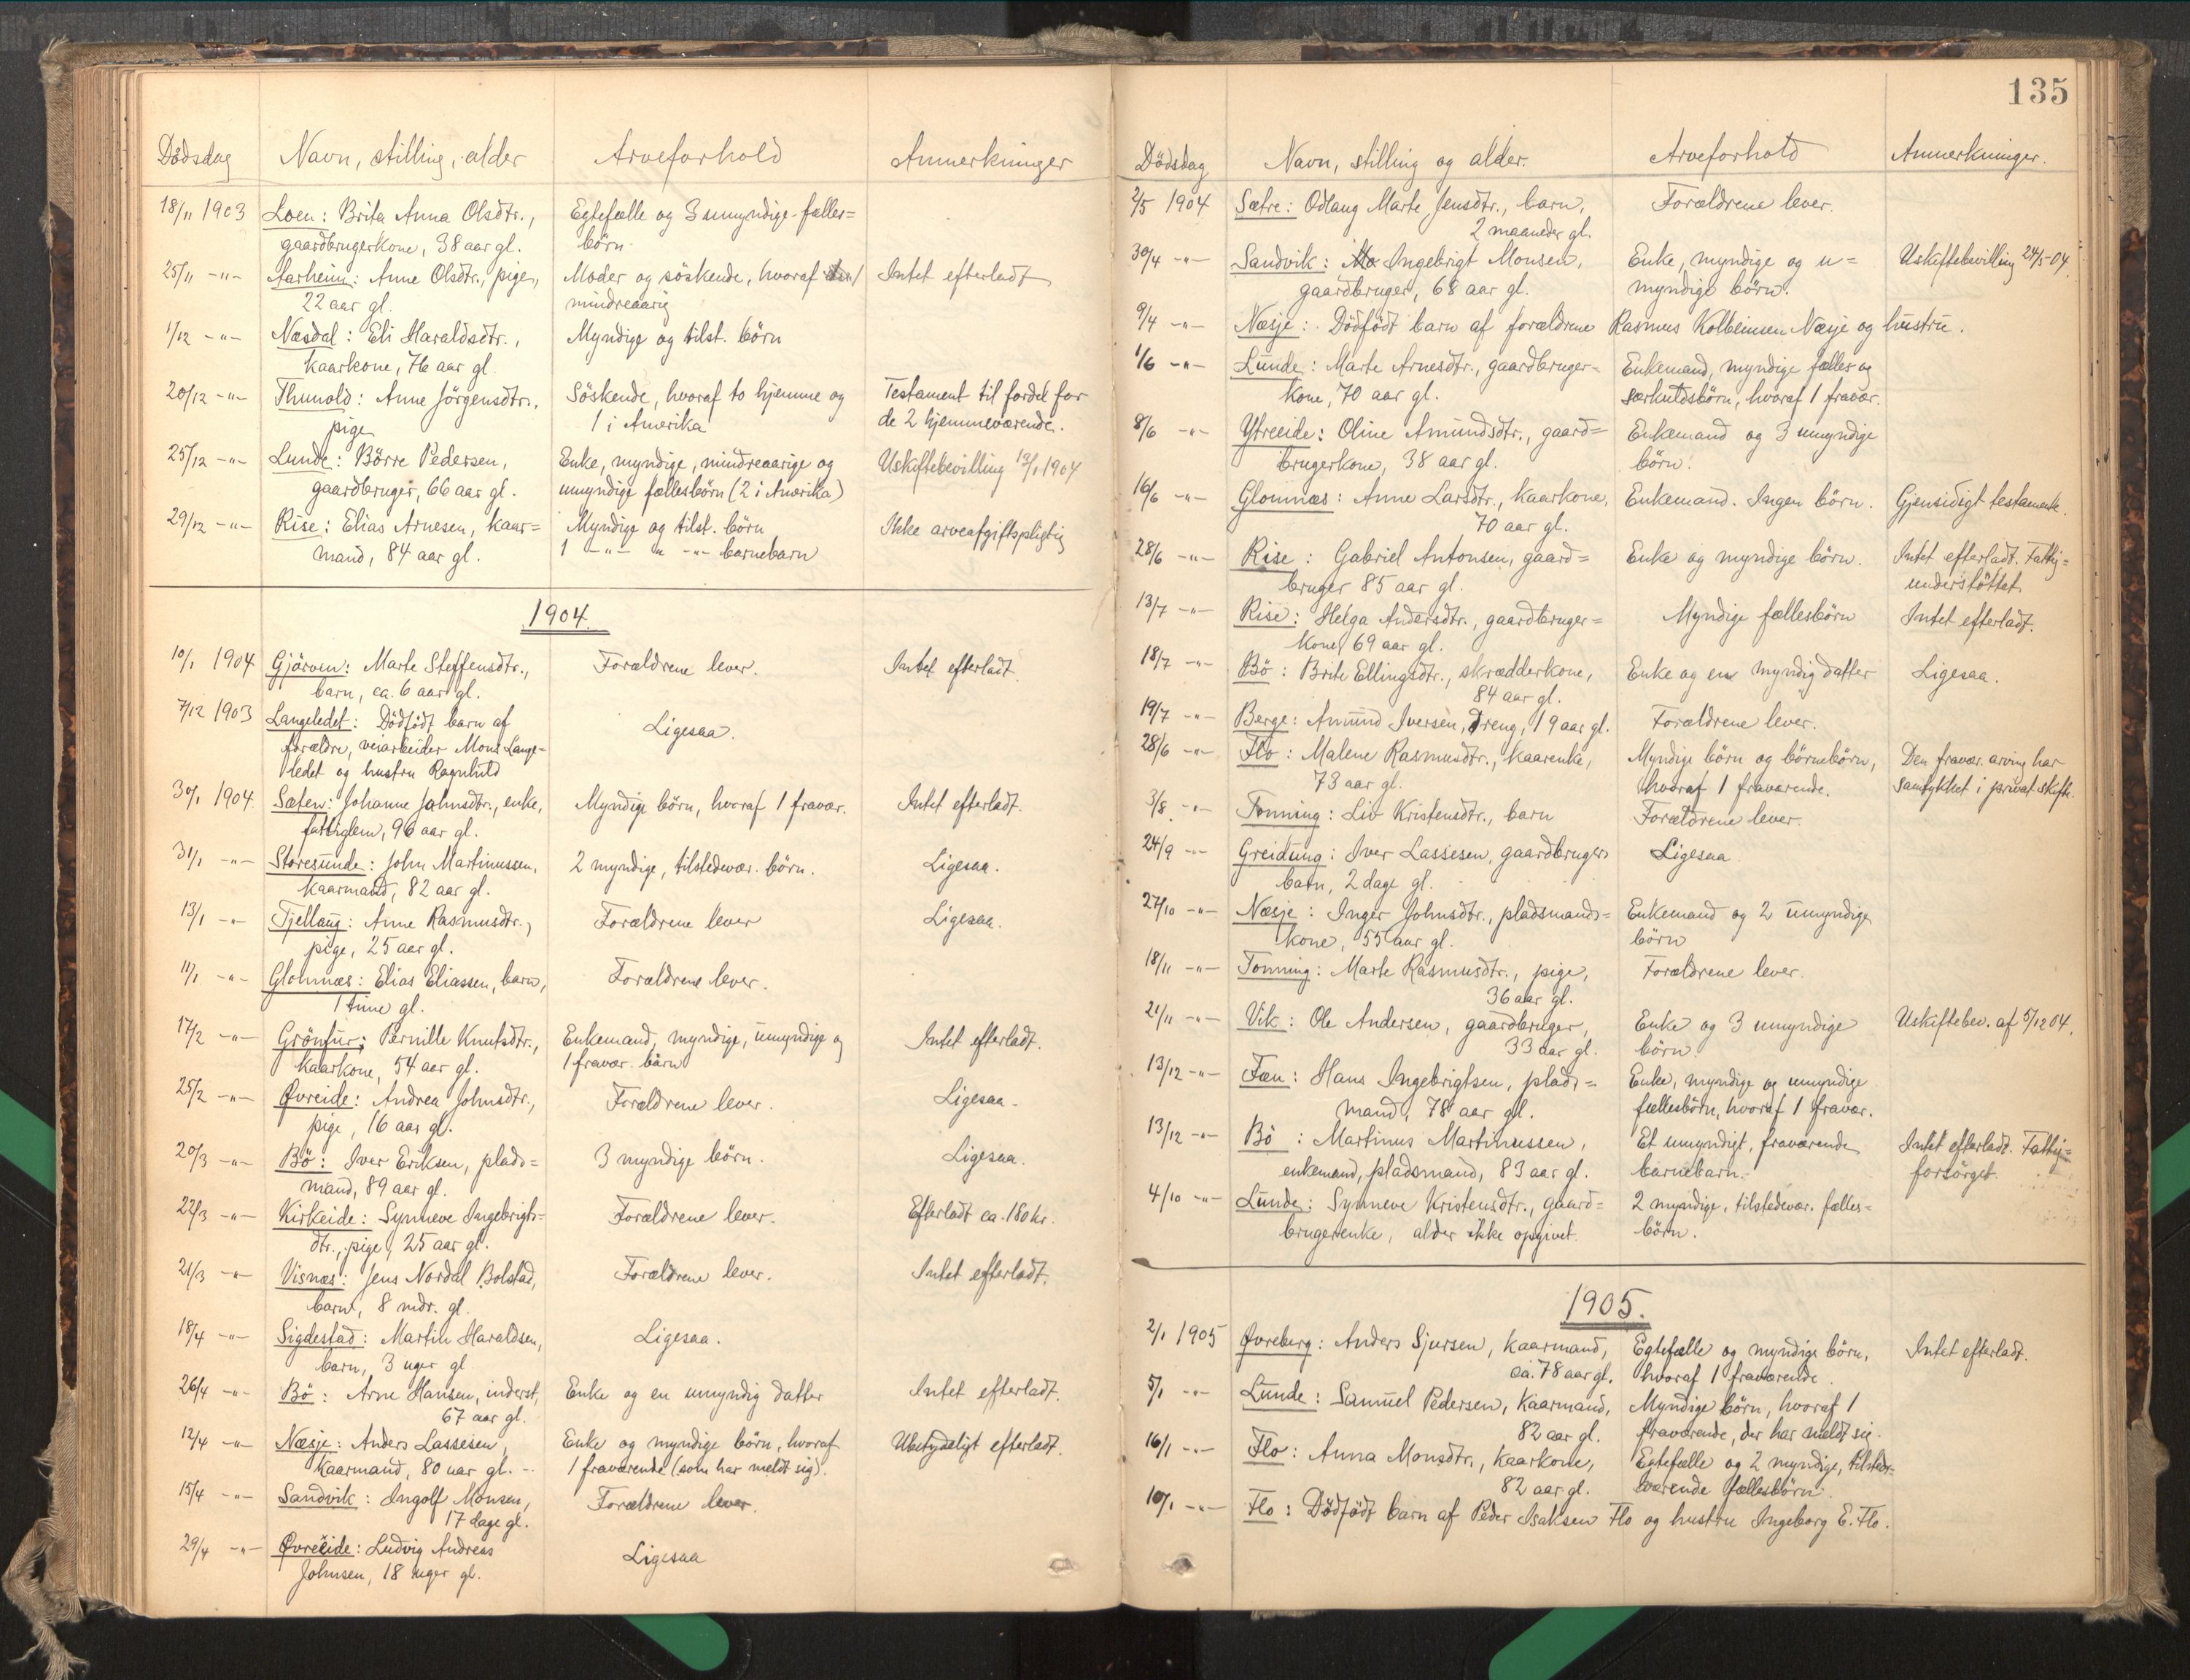 135
Dödsdag Navn, stilling, alder Arveforhold Anmerkninger
18/11 1903 Loen: Brita Anna Olsdtr., Egtefælle og 3 umyndige fælles=
gaardbrugerkone, 38 aar gl. börn.
25/11 -"- Aarheim: Anne Olsdtr., pige, Moder og söskende, hvoraf Intet efterladt
22 aar gl. mindreaarig
1/12 -"- Næsdal: Eli Haraldsdtr., Myndige og tilst. börn
kaarkone, 76 aar gl.
20/12 -"- Thunold: Anne Jörgensdtr., Söskende, hvoraf to hjemme og Testament til fordel for
pige 1 i Amerika de 2 hjemmeværende.
25/12 -"- Lunde: Börre Pedersen, Enke, myndige, mindreaarige og Uskiftebevilling 13/1 1904
gaardbruger, 66 aar gl. umyndige fællesbörn (2 i Amerika)
29/12 -"- Rise: Elias Arnesen, kaar= Myndige og tilst. börn Ikke arveafgiftspligtig
mand, 84 aar gl. 1 -"- " -"- barnebarn
1904.
10/1 1904 Gjörven: Marte Steffensdtr., Forældrene lever. Intet efterladt.
barn, ca. 6 aar gl.
7/12 1903 Langeledet: Dödfödt barn af Ligesaa.
forældre, veiarbeider Mons Lange=
ledet og hustru Ragnhild
30/1 1904. Sæten: Johanne Johnsdtr., enke, Myndige börn, hvoraf 1 fravær. Intet efterladt.
fattiglem, 96 aar gl.
31/1 -"- Storesunde: John Martinussen, 2 myndige, tilstedevær. börn. Ligesaa.
kaarmand, 82 aar gl.
13/1 -"- Tjellaug: Anne Rasmusdtr., Forældrene lever Ligesaa.
pige, 25 aar gl.
11/1 -"- Glomnæs: Elias Eliassen, barn, Forældrene lever.
1 time gl.
17/2 -"- Grönfur: Pernille Knutsdtr., Enkemand, myndige, umyndige og Intet efterladt.
kaarkone, 54 aar gl. 1 fravær. börn
25/2 -"- Øvreide: Andrea Johnsdtr., Forældrene lever. Ligesaa.
pige, 16 aar gl.
20/3 -"- Bö: Iver Eriksen, plads= 3 myndige börn. Ligesaa.
mand, 89 aar gl.
22/3 -"- Kirkeide: Synneve Ingebrigts= Forældrene lever. Efterladt ca. 180 kr.
dtr., pige, 25 aar gl.
21/3 -"- Visnæs: Jens Nordal Bolstad, Forældrene lever. Intet efterladt.
barn, 8 mdr. gl.
18/4 -"- Sigdestad: Martin Haraldsen, Ligesaa.
barn, 3 uger gl.
26/4 -"- Bö: Arne Hansen, inderst, Enke og en umyndig datter Intet efterladt.
67 aar gl.
12/4 -"- Næsje: Anders Lassesen, Enke og myndige börn, hvoraf Ubetydeligt efterladt.
kaarmand, 80 aar gl. 1 fraværende (som har meldt sig).
15/4 -"- Sandvik: Ingolf Monsen, Forældrene lever.
17 dage gl.
29/4 -"- Øvreeide: Ludvig Andreas Ligesaa
Johnsen, 18 uger gl.
Dödsdag Navn, stilling og alder. Arveforhold Anmerkninger.
2/5 1904 Sætre: Odlaug Marte Jensdtr., barn, Forældrene lever.
2 maaneder gl.
30/4 -"- Sandvik: Mo Ingebrigt Monsen, Enke, myndige og u= Uskiftebevilling 24/5-04.
gaardbruger, 68 aar gl. myndige börn.
9/4 -"- Næsje: Dödfödt barn af forældrene Rasmus Kolbeinsen Næsje og hustru.
1/6 -"- Lunde: Marte Arnesdtr., gaardbruger= Enkemand, myndige fælles og
kone, 70 aar gl. særkuldsbörn, hvoraf 1 fravær.
8/6 -"- Ytreeide: Oline Amundsdtr., gaard= Enkemand og 3 umyndige
brugerkone, 38 aar gl. börn.
16/6 -"- Glomnæs: Anne Larsdtr., kaarkone, Enkemand. Ingen börn. Gjensidigt testamente.
70 aar gl.
28/6 -"- Rise: Gabriel Antonsen, gaard= Enke og myndige börn. Intet efterladt. Fattig=
bruger 85 aar gl. understöttet
13/7 -"- Rise: Helga Andersdtr., gaardbruger= Myndige fællesbörn Intet efterladt.
kone, 69 aar gl.
18/7 -"- Bö: Brite Ellingsdtr., skrædderkone, Enke og en myndig datter Ligesaa.
84 aar gl.
19/7 -"- Berge: Amund Iversen, dreng, 19 aar gl. Forældrene lever.
28/6 -"- Flo: Malene Rasmusdtr., kaarenke, Myndige börn og börnebörn, Den fravær. arving har
73 aar gl. hvoraf 1 fraværende. samtykket i privat skifte.
3/8 -"- Tonning: Liv Kristensdtr., barn Forældrene lever.
24/9 -"- Greidung: Iver Lassesen, gaardbruger Ligesaa
barn, 2 dage gl.
27/10 -"- Næsje: Inger Johnsdtr., pladsmands= Enkemand og 2 umyndige
kone, 55 aar gl. börn
18/11 -"- Tonning: Marte Rasmusdtr., pige, Forældrene lever.
36 aar gl.
21/11 -"- Vik: Ole Andersen, gaardbruger, Enke og 3 umyndige Uskiftebev. af 5/12 04.
33 aar gl. börn.
13/12 -"- Fæn: Hans Ingebrigtsen, plads= Enke, myndige og umyndige
mand, 78 aar gl. fællesbörn, hvoraf 1 fravær.
13/12 -"- Bö: Martinus Martinussen, Et umyndigt, fraværende Intet efterladt. Fattig=
enkemand, pladsmand, 83 aar gl. barnebarn. forsörget.
4/10 -"- Lunde: Synneve Kristensdtr., gaard= 2 myndige, tilstedevær. fælles=
brugerenke, alder ikke opgivet. börn.
1905.
2/1 1905 Øvreberg: Anders Sjursen, kaarmand, Egtefælle og myndige börn, Intet efterladt.
ca. 78 aar gl. hvoraf 1 fraværende.
5/1 -"- Lunde: Samuel Pedersen, kaarmand, Myndige börn, hvoraf 1
82 aar gl. fraværende, der har meldt sig.
16/1 -"- Flo: Anna Monsdtr., kaarkone, Egtefælle og 2 myndige, tilstede=
82 aar gl. værende fællesbörn.
10/1 -"- Flo: Dödfödt barn af Peder Isaksen Flo og hustru Ingeborg E. Flo.